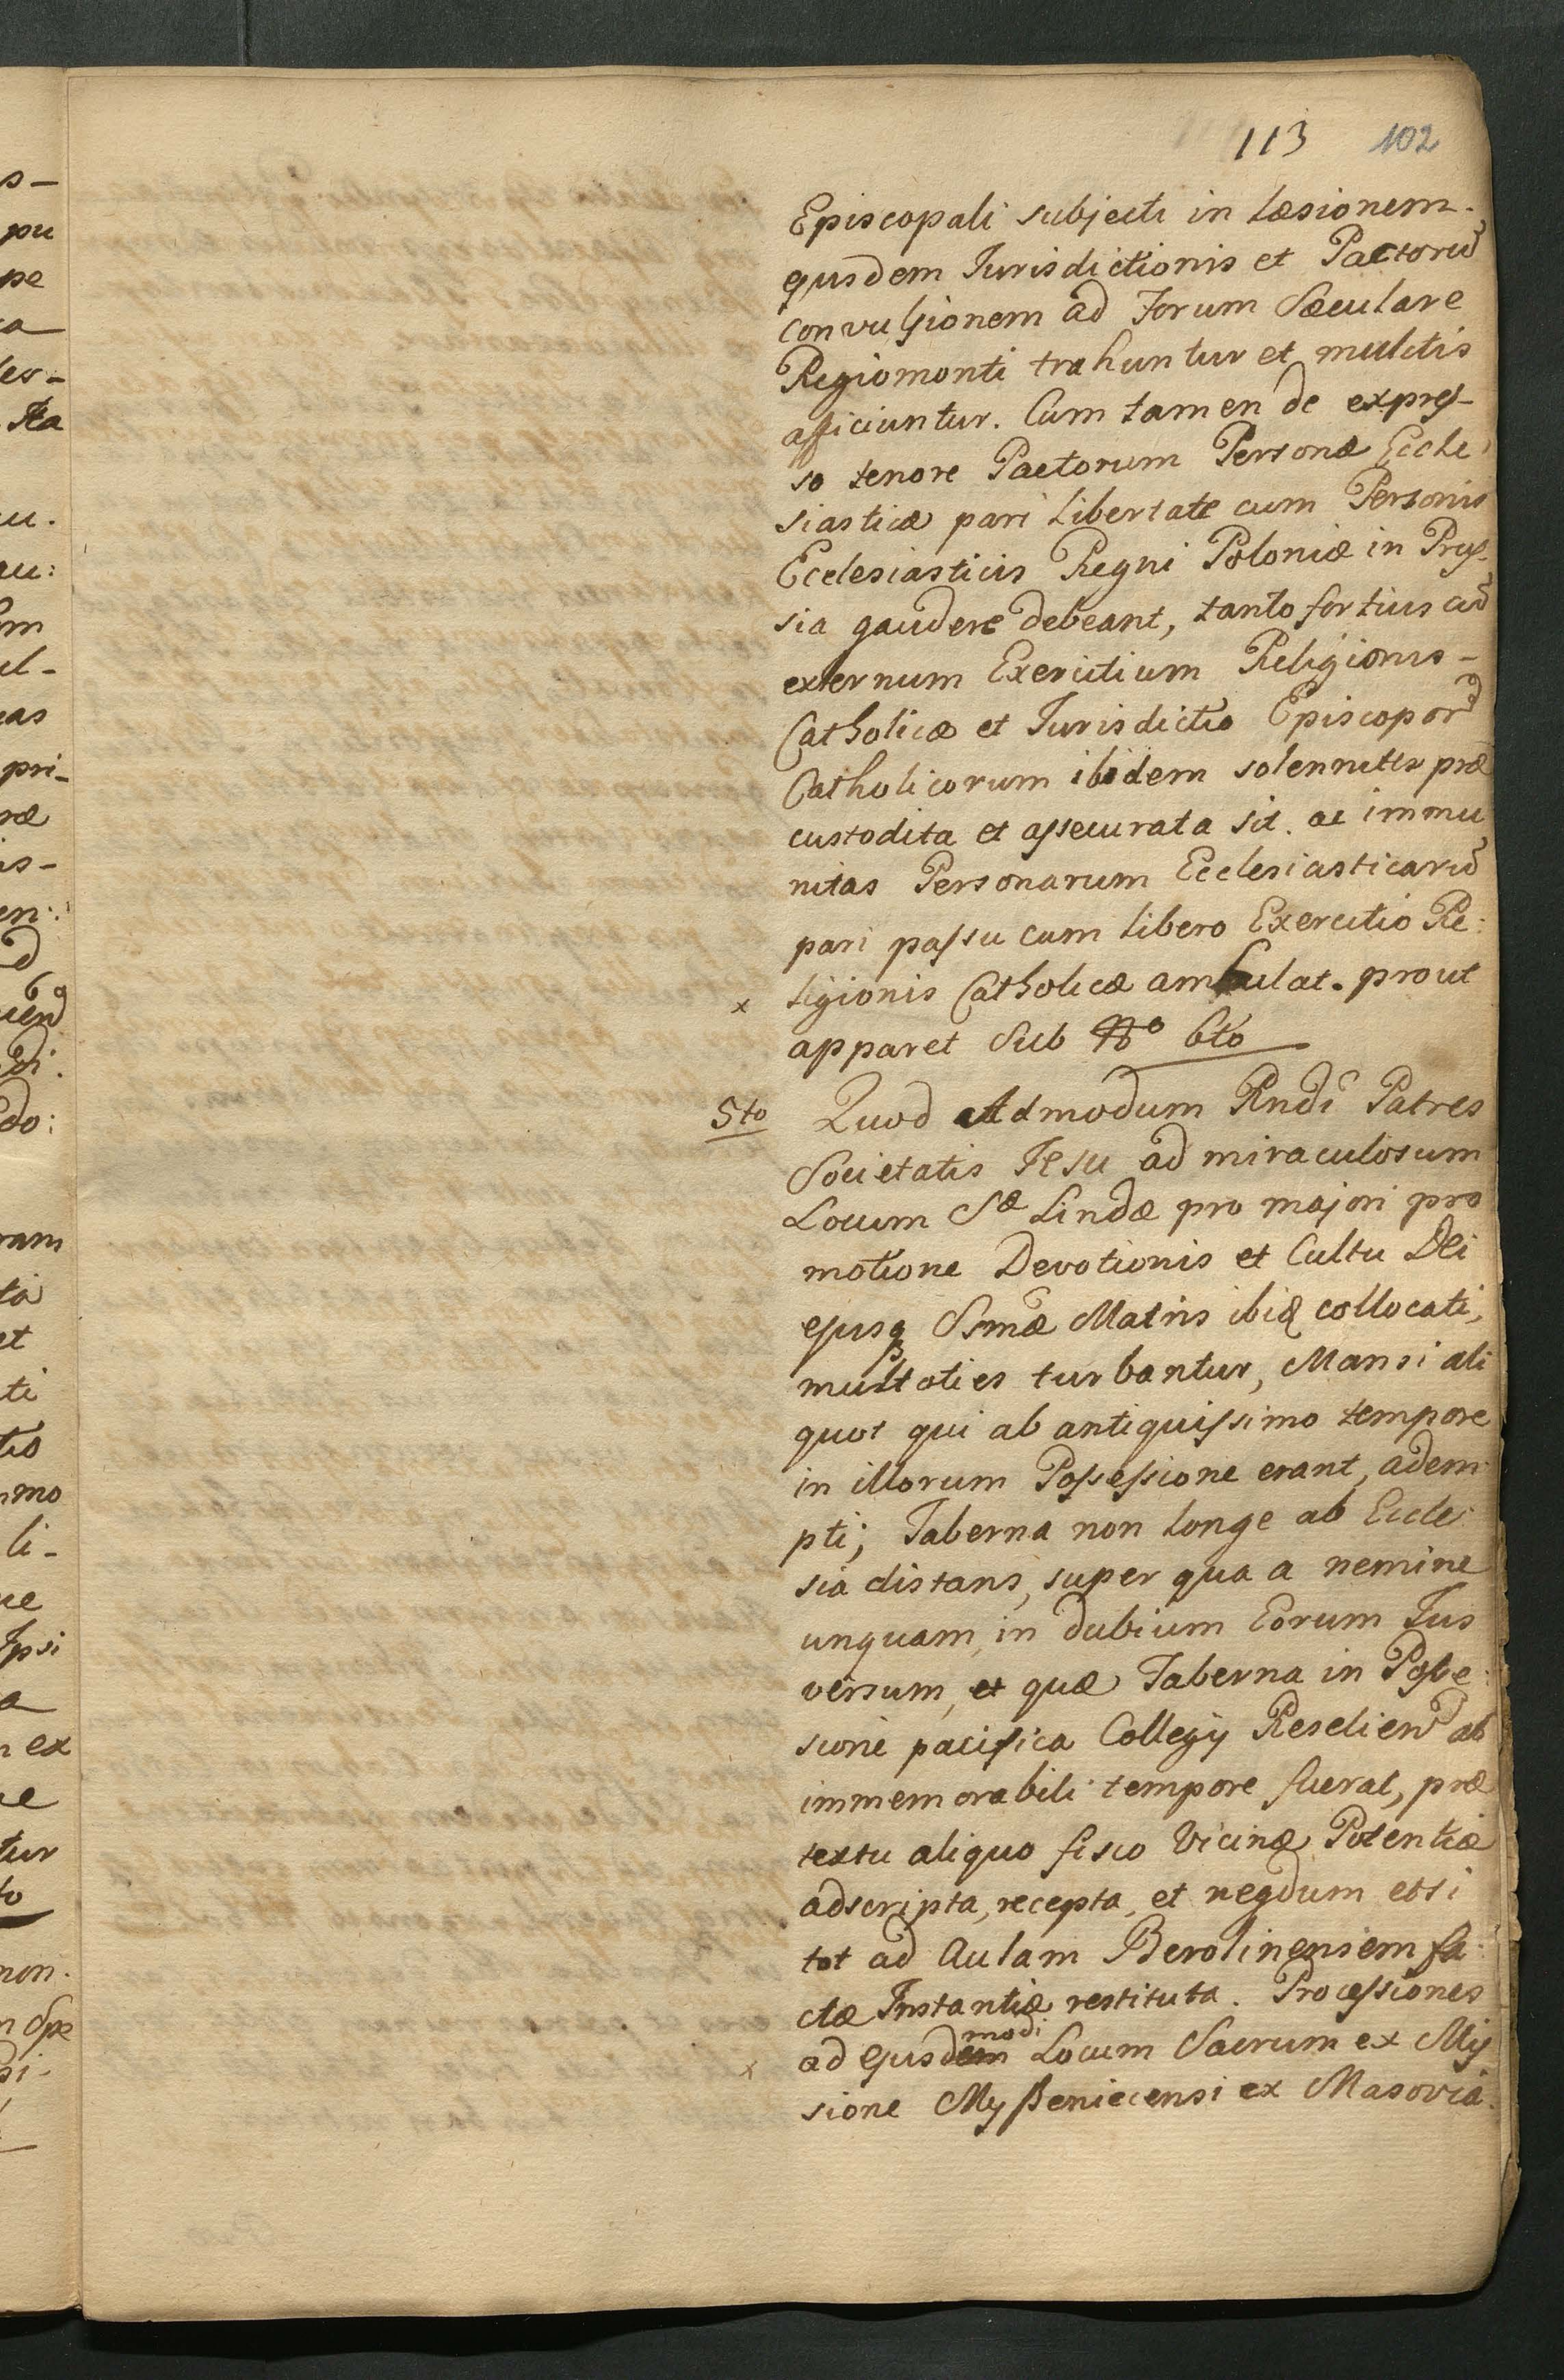 113 102
Episcopali subjecti in læsionem.
ejusdem Jurisdictionis et Pactorū
convulsionem ad Forum Sæculare
Regiomonti trahuntur et mulctis
afficiuntur. Cum tamen de expres-
so tenore Pactorum Personæ Eccle
siasticæ pari libertate cum Personis
Ecclesiasticis Regni Poloniæ in Prus-
sia gaudere debeant, tanto fortius cū
externum Exercitium Religionis-
Catholicæ et Jurisdictio Episcoporū
Catholicorum ibidem solenniter præ
custodita et assecurata sit. ac immu
nitas Personarum Ecclesiasticarū
pari passu cum libero Exercitio Re:
x ligionis Catholicæ ambulat. prout
apparet Sub No 6to
5to Quod Admodum Rndi Patres
Societatis Jesu ad miraculosum
Locum Sæ Lindæ pro majori pro
motione Devotionis et Cultu Dei
ejusq Ssmæ Matris ibiq collocati,
multoties turbantur, Mansi ali
quot qui ab antiquissimo tempore
in illorum Possessione erant, adem
pti; Taberna non longe ab Eccle
sia distans, super qua a nemine
unquam in dubium Eorum Jus
versum, et quæ Taberna in Posse:
sione pacifica Collegij Reselien ab
immemorabili tempore fuerat, præ
textu aliquo fisco Vicinæ Potentiæ
adscripta, recepta, et neqdum etsi
tot ad Aulam Berolinensem fa
ctæ Instantiæ restituta. Processiones
modi
x ad ejusdem Locum Sacrum ex Mis
sione Myszeniecensi ex Masovia.